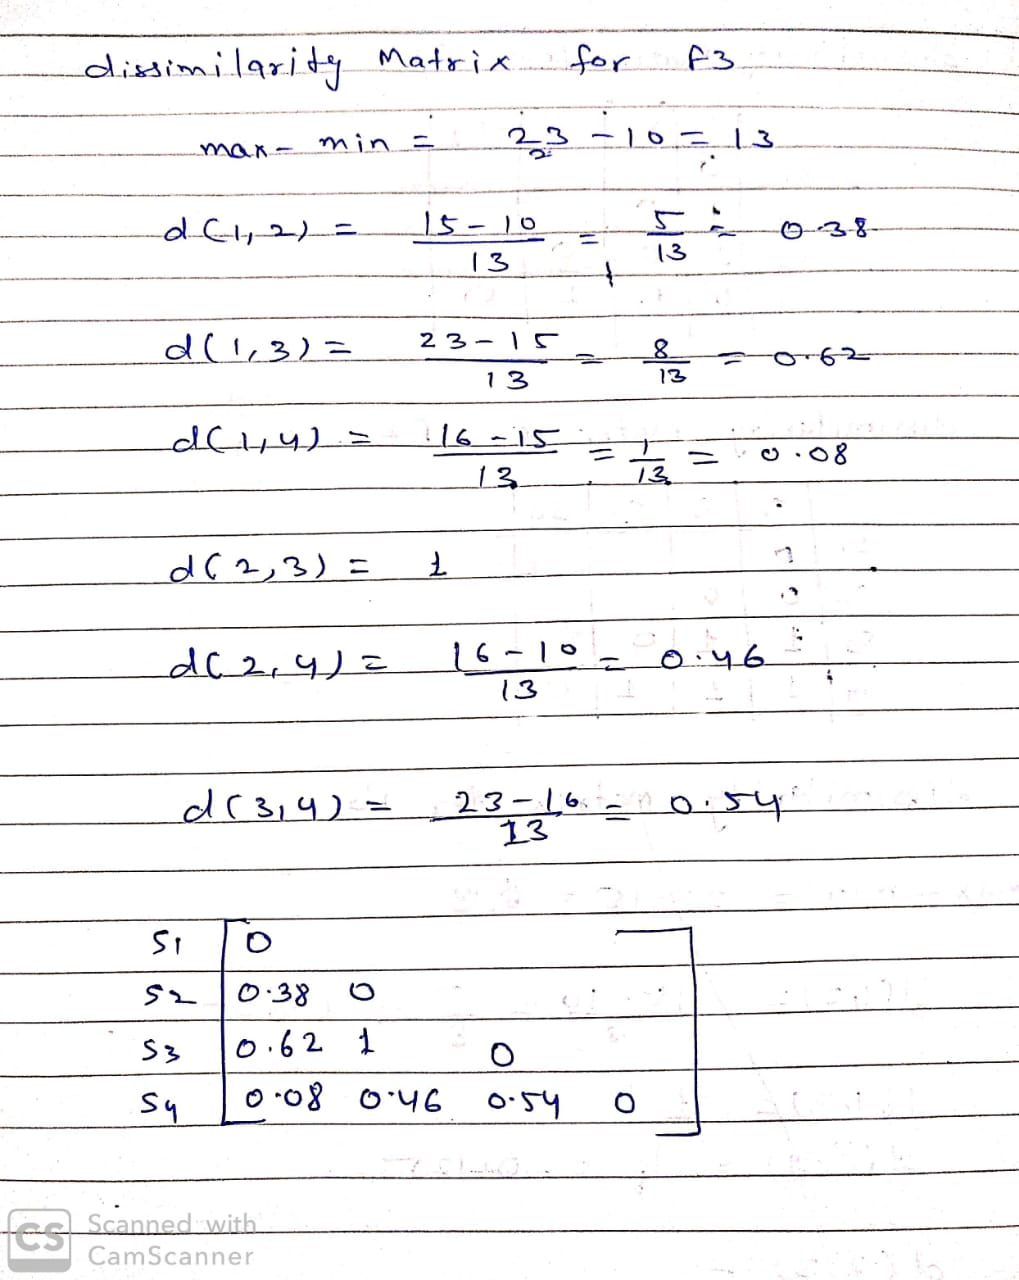 dissimilarity Matrix for f3
max - min = 23 - 10 = 13
d(1,2) = 15-10/13 = 5/13 = 0.38
d(1,3) = 23-15/13 = 8/13 = 0.62
d(1,4) = 16-15/13 = 1/13 = 0.08
d(2,3) = 1
d(2,4) = 16-10/13 = 0.46
d(3,4) = 23-16/13 = 0.54
S1 0
S2 0.38 0
S3 0.62 1 0
S4 0.08 0.46 0.54 0
CS Scanned with
CamScanner